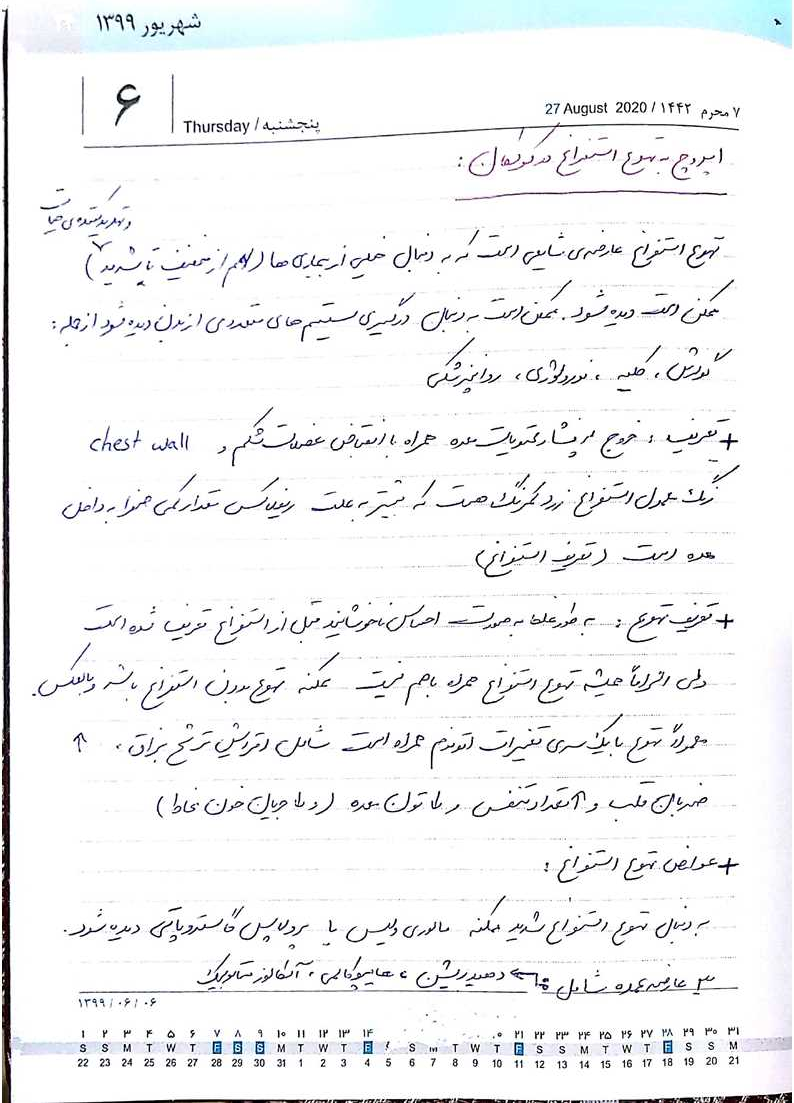 شهریور ۱۳۹۹
۶
پنجشنبه / Thursday
27 August 2020 / ۱۴۴۲ محرم ۷
اپروچ به تهوع استفراغ در کودکان :
و تهدیدکننده‌ی حیات
تهوع استفراغ عارضه‌ی شایعی است که به دنبال خیلی از بیماری ها (اعم از خفیف تا شدید)
ممکن است دیده شود. ممکن است به دنبال درگیری سیستم های متعددی از بدن دیده شود از جمله :
گوارش ، کلیه ، نورولوژی ، روانپزشکی
+ تعریف : خروج پر فشار محتویات معده همراه با انقباض عضلات شکم و chest wall
رنگ معمول استفراغ زرد کمرنگ هست که بیشتر به علت رفلاکس مقدار کمی صفرا به داخل
معده است (تعریف استفراغ)
+ تعریف تهوع : به طور غلط به صورت احساس ناخوشایند قبل از استفراغ تعریف شده است
ولی الزاماً همیشه تهوع استفراغ همراه باهم نیست ممکنه تهوع بدون استفراغ باشه و بالعکس.
معمولاً تهوع با یک سری تغییرات اتونوم همراه است شامل افزایش ترشح بزاق ، ↑
ضربان قلب و ↑ تعداد تنفس و ↓ تون معده (و ↓ جریان خون مخاط)
+ عوارض تهوع استفراغ :
به دنبال تهوع استفراغ شدید ممکنه مالوری ویس یا پرولاپس گاستروپاتی دیده شود.
۳ عارضه عمده شامل : ← دهیدریشن ، هایپوکالمی ، آلکالوز متابولیک
۱۳۹۹/۰۶/۰۶
۱ ۲ ۳ ۴ ۵ ۶ ۷ ۸ ۹ ۱۰ ۱۱ ۱۲ ۱۳ ۱۴ ۲۱ ۲۲ ۲۳ ۲۴ ۲۵ ۲۶ ۲۷ ۲۸ ۲۹ ۳۰ ۳۱
S S M T W T F S S M T W T F S M T W T F S S M T W T F S S M
22 23 24 25 26 27 28 29 30 31 1 2 3 4 5 6 7 8 9 10 11 12 13 14 15 16 17 18 19 20 21